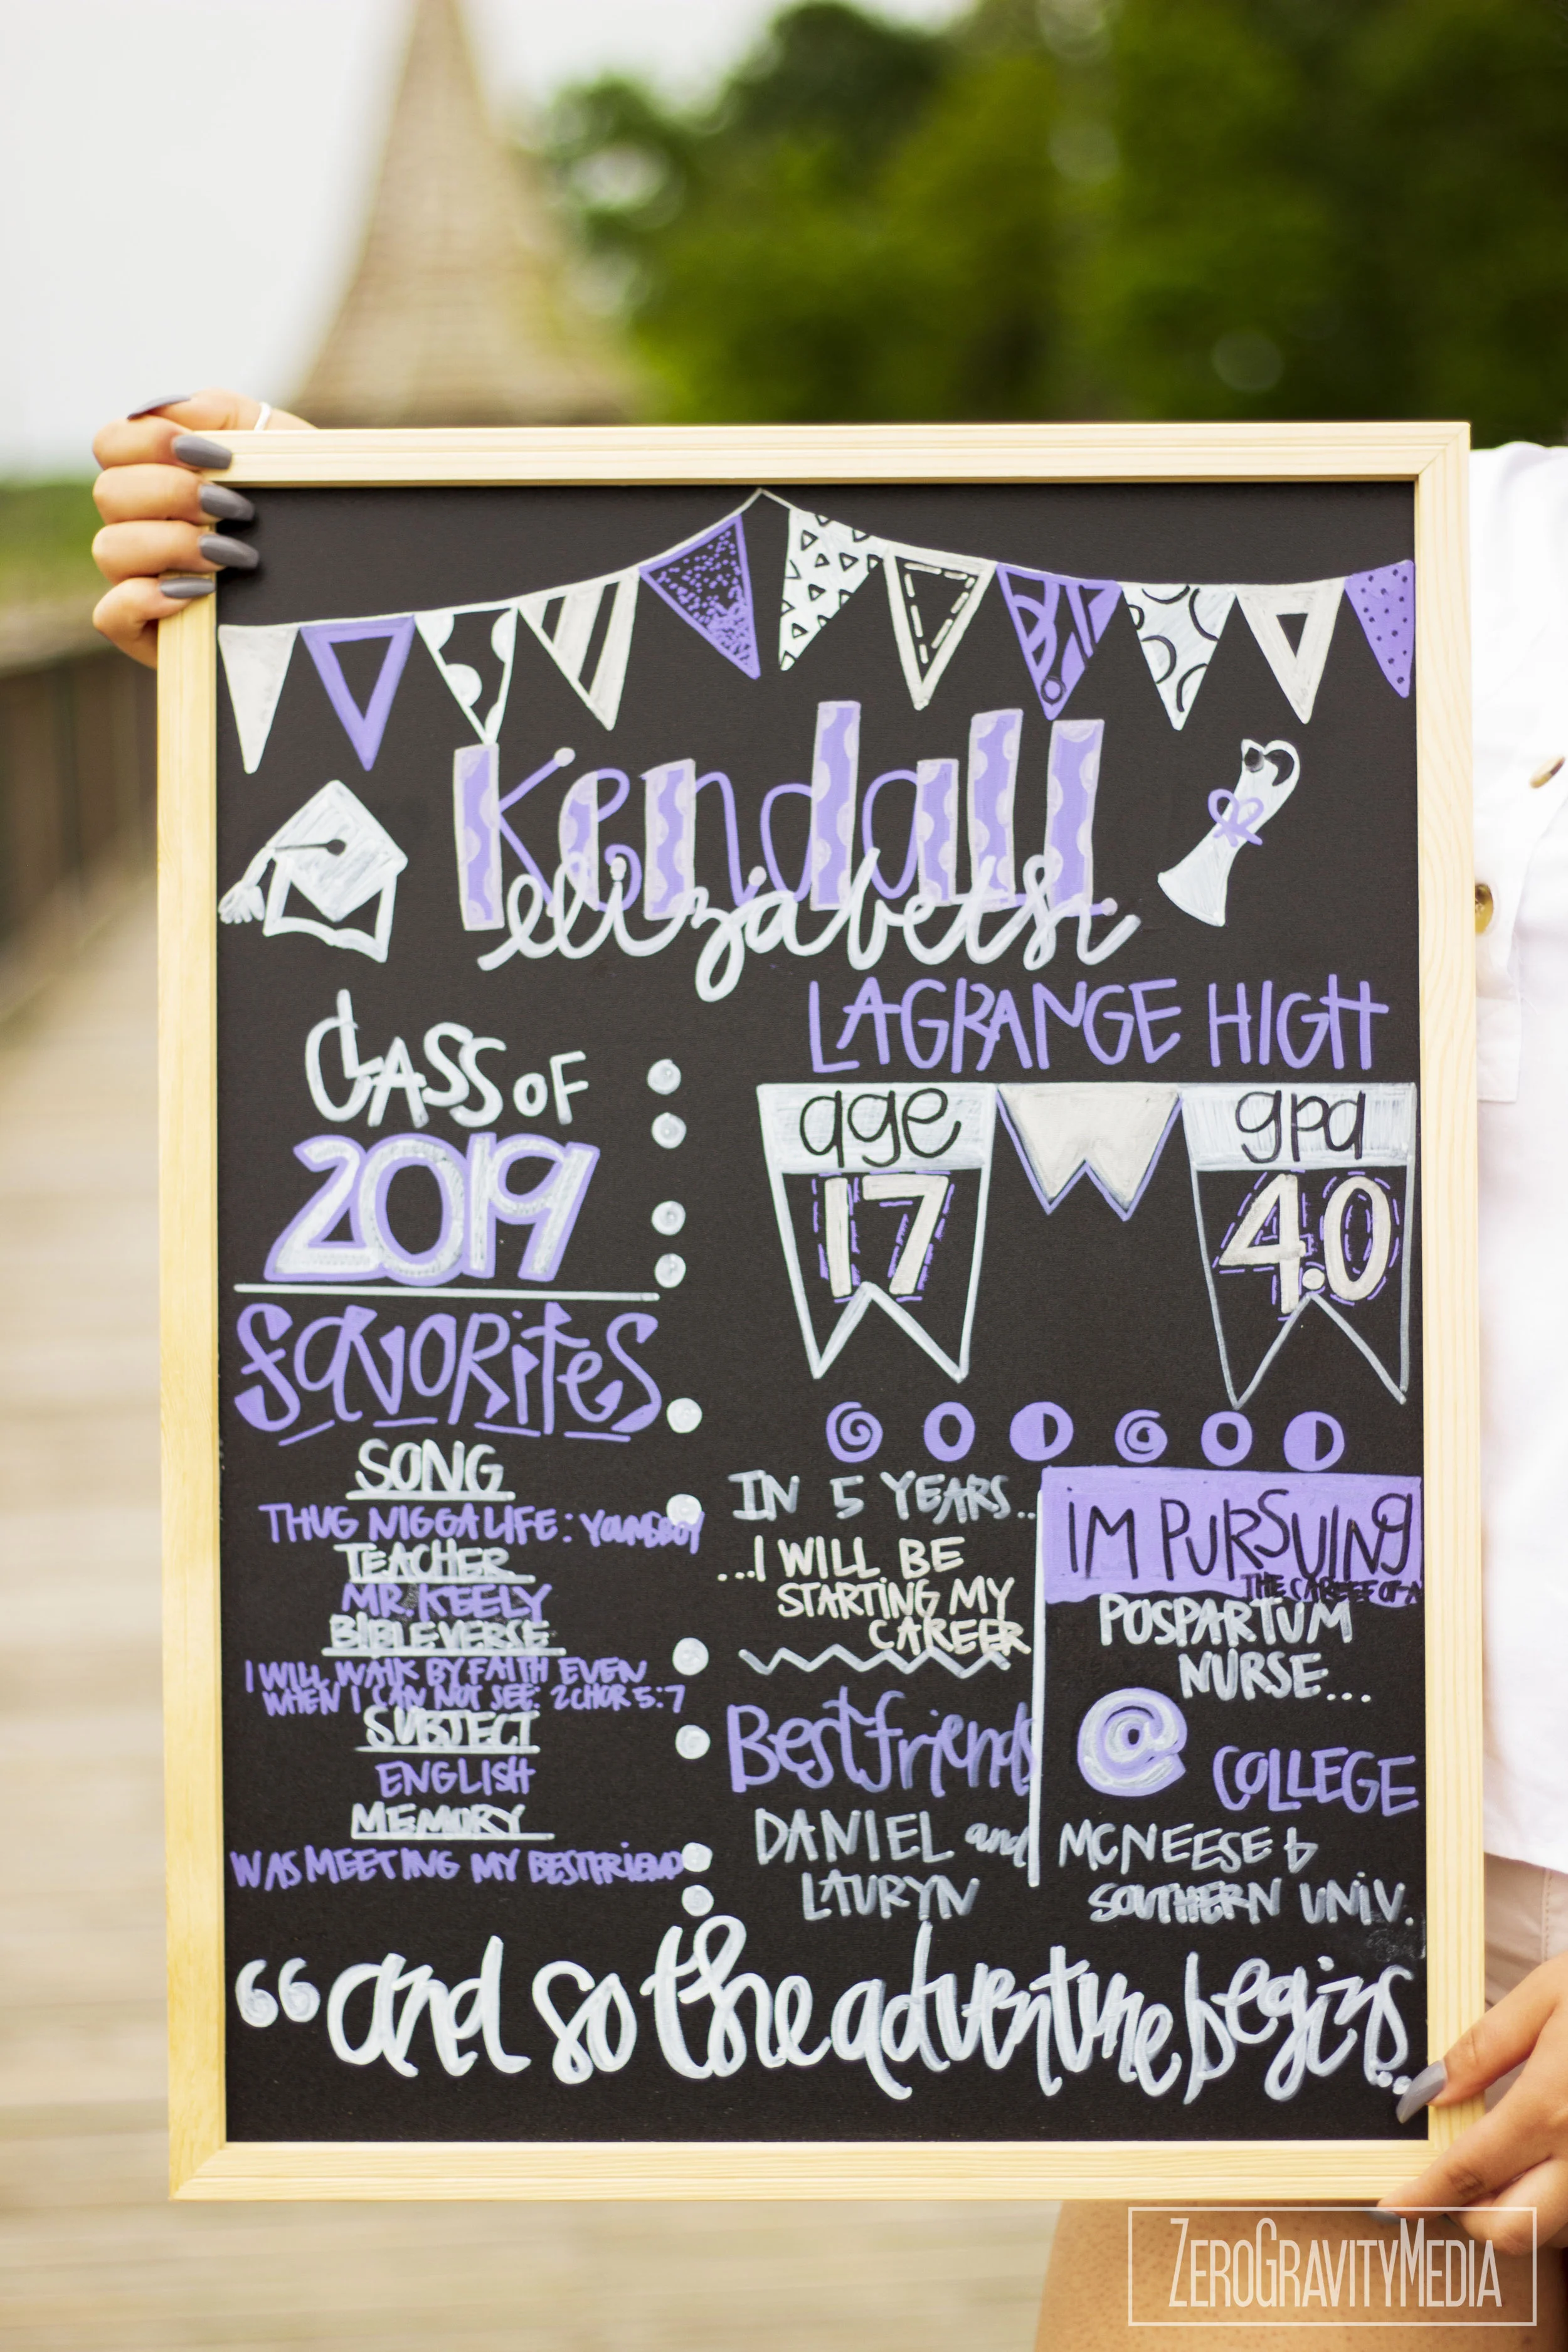 Kendall
elizabeth
LAGRANGE HIGH
CLASS OF
2019
age
17
gpa
4.0
FAVORITES
SONG
THUG NIGGA LIFE: YOUNGBOY
TEACHER
MR. KEELY
BIBLE VERSE
I WILL WALK BY FAITH EVEN
WHEN I CAN NOT SEE: 2 CHOR 5:7
SUBJECT
ENGLISH
MEMORY
WAS MEETING MY BESTFRIEND
IN 5 YEARS...
...I WILL BE
STARTING MY
CAREER
Bestfriends
DANIEL and
LAURYN
IM PURSUING
THE CAREER OF A
POSPARTUM
NURSE...
@ COLLEGE
MCNEESE &
SOUTHERN UNIV.
"and so the adventure begins...
ZEROGRAVITYMEDIA